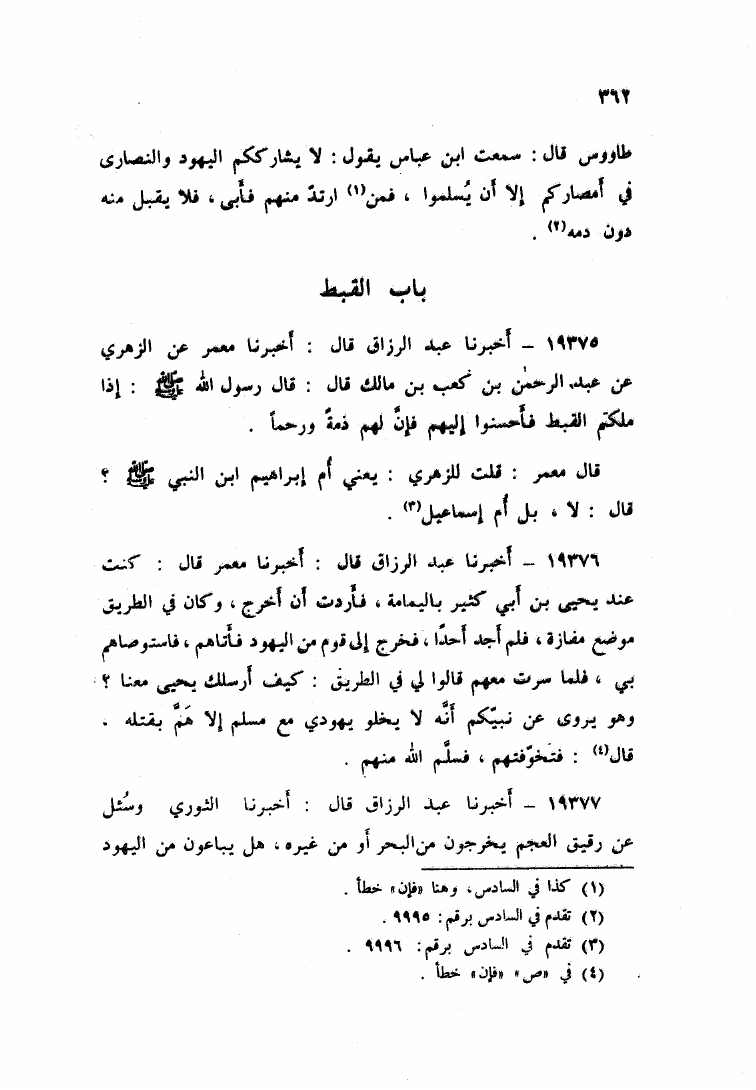 ٣٦٢
طاووس قال : سمعت ابن عباس يقول : لا يشارككم اليهود والنصارى
في أمصاركم إلا أن يُسلموا ، فمن(١) ارتدّ منهم فأبى ، فلا يقبل منه
دون دمه(٢) .
باب القبط
١٩٣٧٥ – أخبرنا عبد الرزاق قال : أخبرنا معمر عن الزهري
عن عبد الرحمٰن بن كعب بن مالك قال : قال رسول الله ﷺ : إذا
ملكتم القبط فأحسنوا إليهم فإنَّ لهم ذمةً ورحماً .
قال معمر : قلت للزهري : يعني أم إبراهيم ابن النبي ﷺ ؟
قال : لا ، بل أم إسماعيل(٣) .
١٩٣٧٦ – أخبرنا عبد الرزاق قال : أخبرنا معمر قال : كنت
عند يحيى بن أبي كثير باليمامة ، فأردت أن أخرج ، وكان في الطريق
موضع مفازة ، فلم أجد أحدًا ، فخرج إلى قوم من اليهود فأتاهم ، فاستوصاهم
بي ، فلما سرت معهم قالوا لي في الطريق : كيف أرسلك يحيى معنا ؟
وهو يروى عن نبيّكم أنَّه لا يخلو يهودي مع مسلم إلا هَمَّ بقتله .
قال(٤) : فتخوّفتهم ، فسلَّم الله منهم .
١٩٣٧٧ – أخبرنا عبد الرزاق قال : أخبرنا الثوري وسُئل
عن رقيق العجم يخرجون من البحر أو من غيره ، هل يباعون من اليهود
(١) كذا في السادس ، وهنا «فإن» خطأ .
(٢) تقدم في السادس برقم : ٩٩٩٥ .
(٣) تقدم في السادس برقم : ٩٩٩٦ .
(٤) في «ص» «فإن» خطأ .